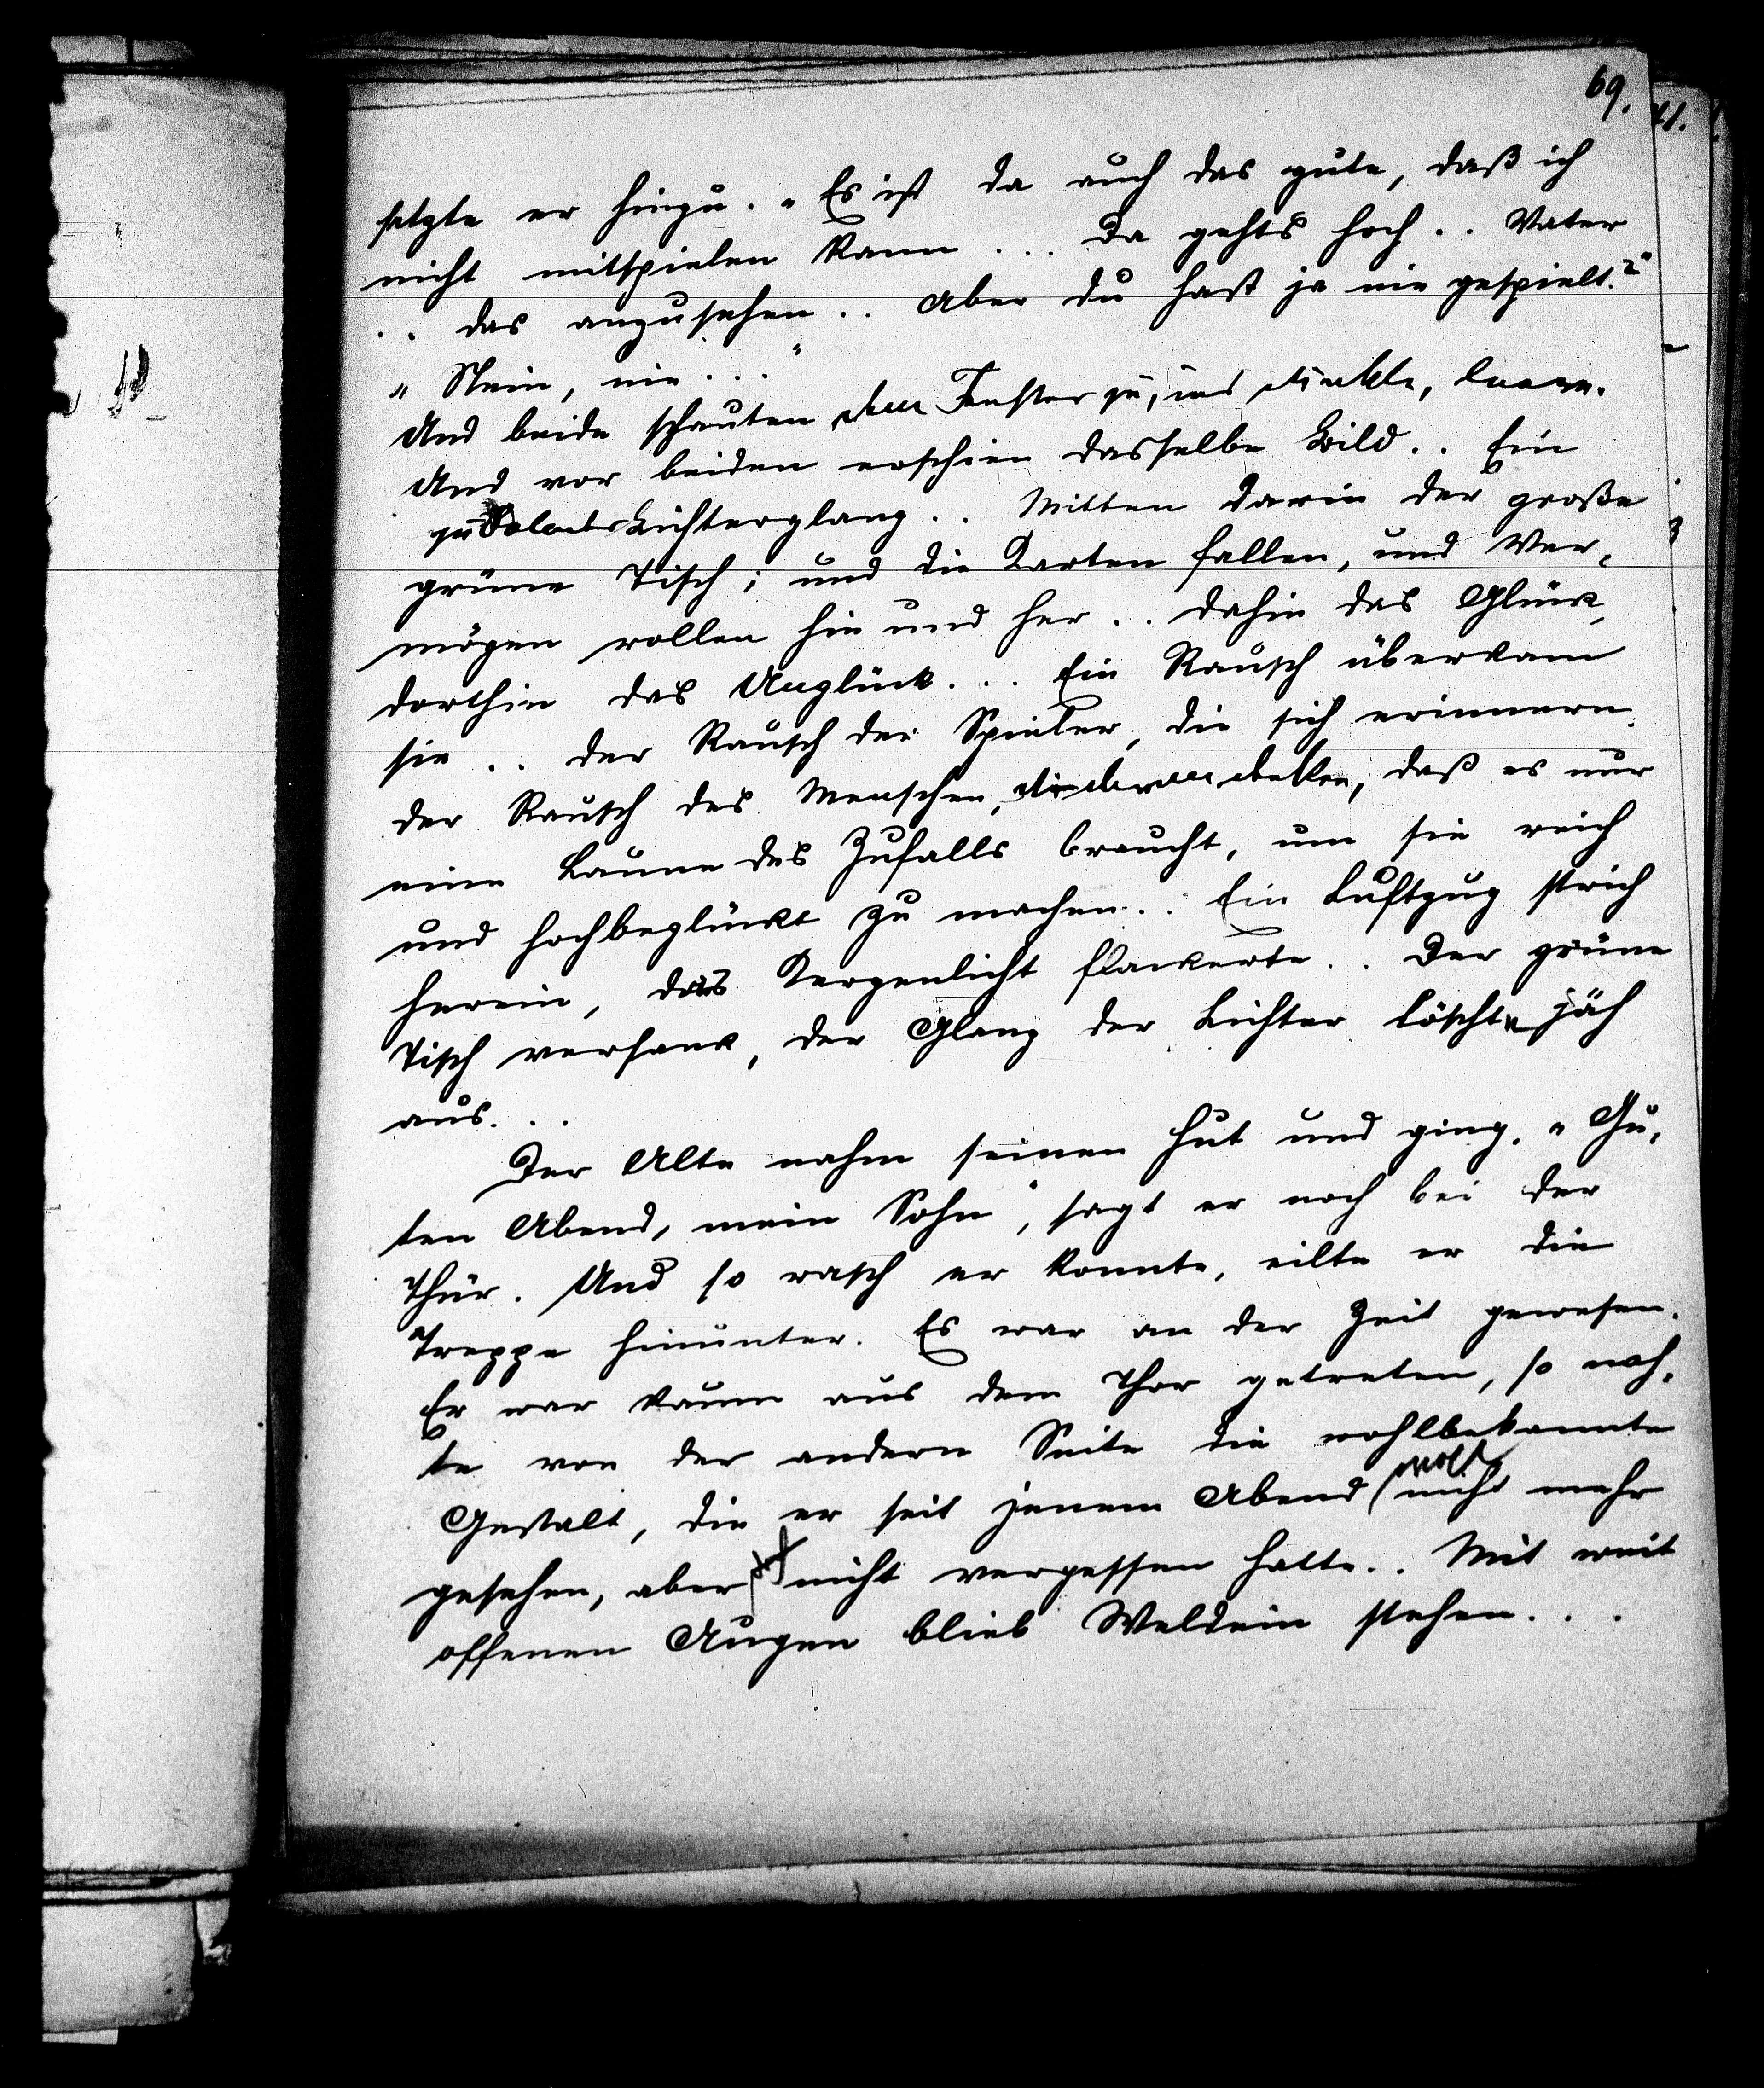 69.
setzte er hinzu. „Es ist da auch das gute, daß ich
nicht mitspielen kann ... Da gehts hoch .. Vater
.. das anzusehen .. Aber du hast ja nie gespielt?“
„Nein, nie ...“
Und beide schauten dem Fenster zu, ins dunkle, leere.
Und vor beiden erschien dasselbe Bild .. Ein
Lichterglanz .. Mitten darin der große
grüne Tisch; und die Karten fallen, und Ver-
mögen rollen hin und her .. dahin das Glück,
dorthin das Unglück ... Ein Rausch überkam
sie .. der Rausch der Spieler, die sich erinnern.
der Rausch des Menschen, die daran denken, daß es nur
eine Laune des Zufalls braucht, um sie reich
und hochbeglückt zu machen .. Ein Luftzug strich
herein, das Kerzenlicht flackerte .. Der grüne
Tisch versank, der Glanz der Lichter löschte jäh
aus ...
Der Alte nahm seinen Hut und ging. „Gu-
ten Abend, mein Sohn“, sagt er noch bei der
Thür. Und so rasch er konnte, eilte er die
Treppe hinunter. Es war an der Zeit gewesen.
Er war kaum aus dem Thor getreten, so nah-
te von der andern Seite die wohlbekannte
Gestalt, die er seit jenem Abend nicht mehr
gesehen, aber nicht vergessen hatte .. Mit weit
offenen Augen blieb Weldein stehen ...
71.